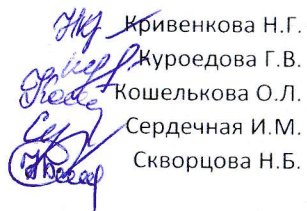 Кривенкова Н.Г.
Куроедова Г.В.
Кошелькова О.Л.
Сердечная И.М.
Скворцова Н.Б.